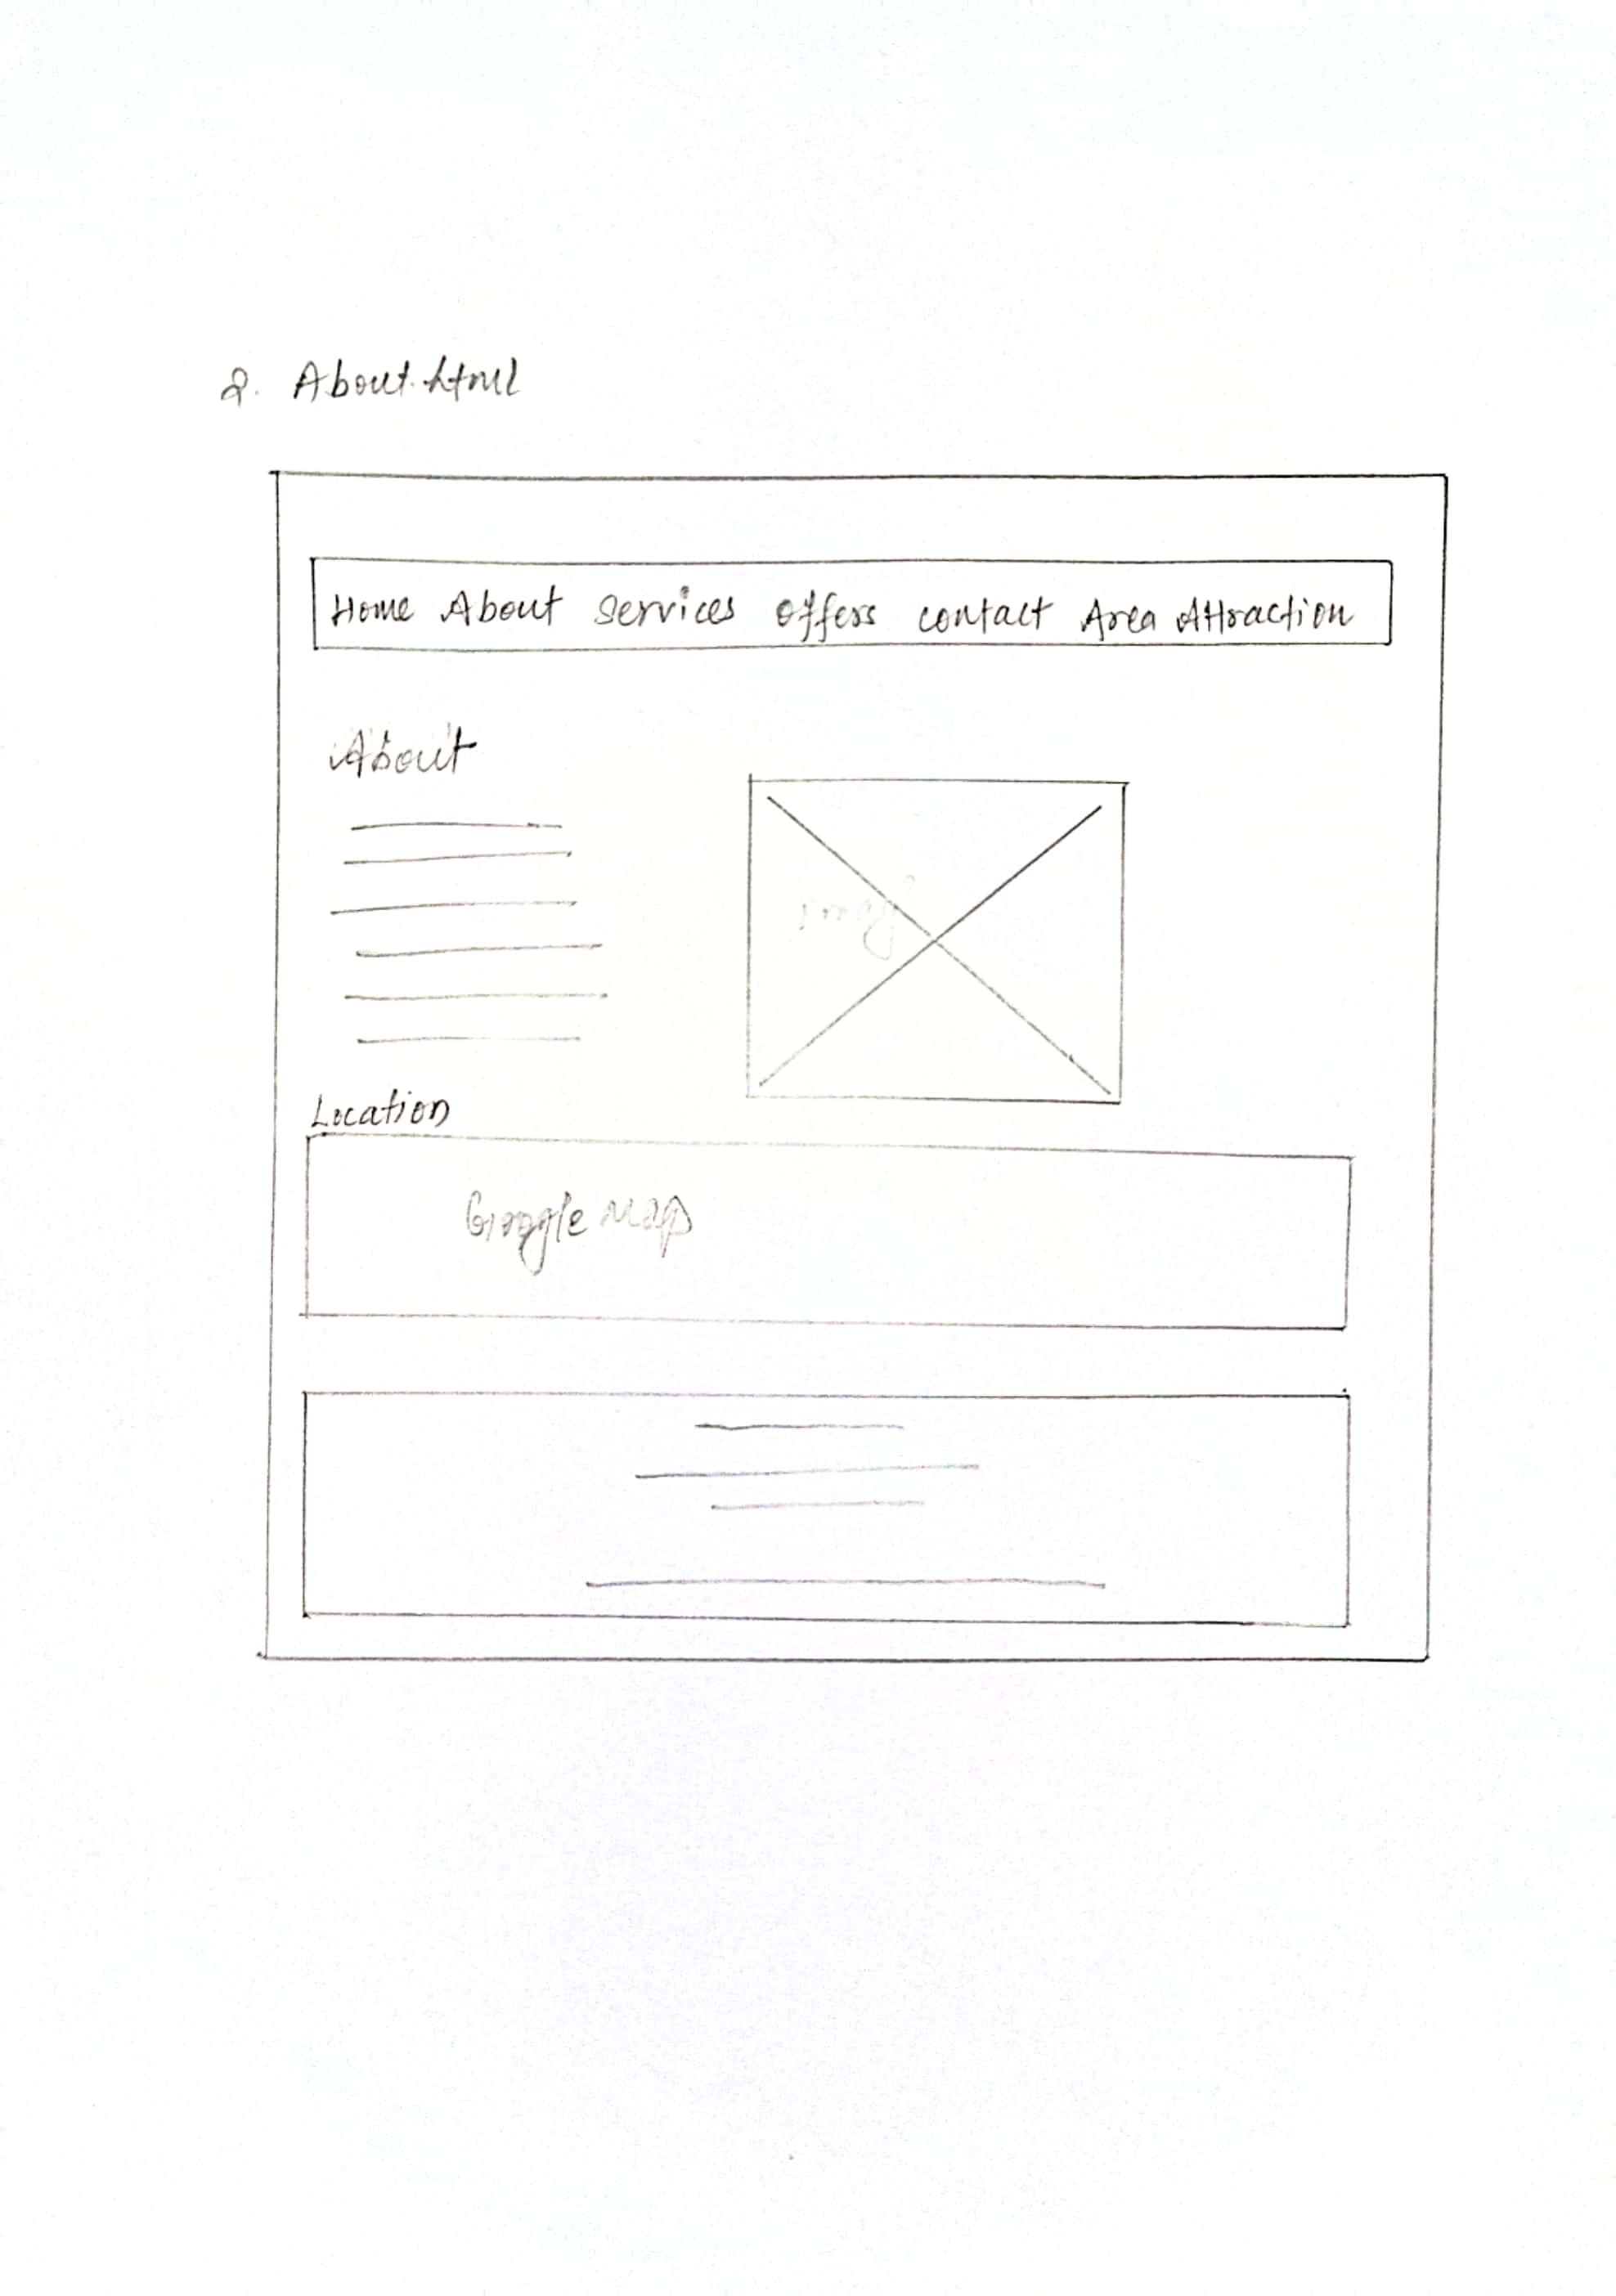 2. About.html
Home About Services Offers contact Area Attraction
About
Image
Location
Google Map